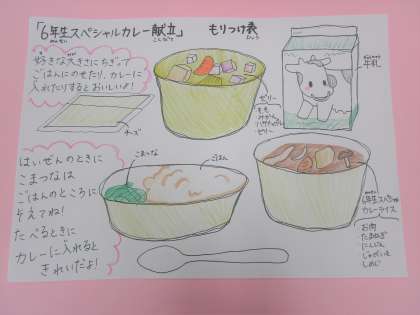 「6年生スペシャルカレー献立」 もりつけ表
好きな大きさにちぎって
ごはんにのせたり、カレーに
入れたりするとおいしいよ!
チーズ
ゼリー
もも
みかん
パイナップル
ゼリー
牛乳
はいぜんのときに
こまつなは
ごはんのところに
そえてね!
たべるときに
カレーに入れると
きれいだよ!
こまつな
ごはん
6年生スペシャル
カレーライス
お肉
たまねぎ
にんじん
じゃがいも
しめじ